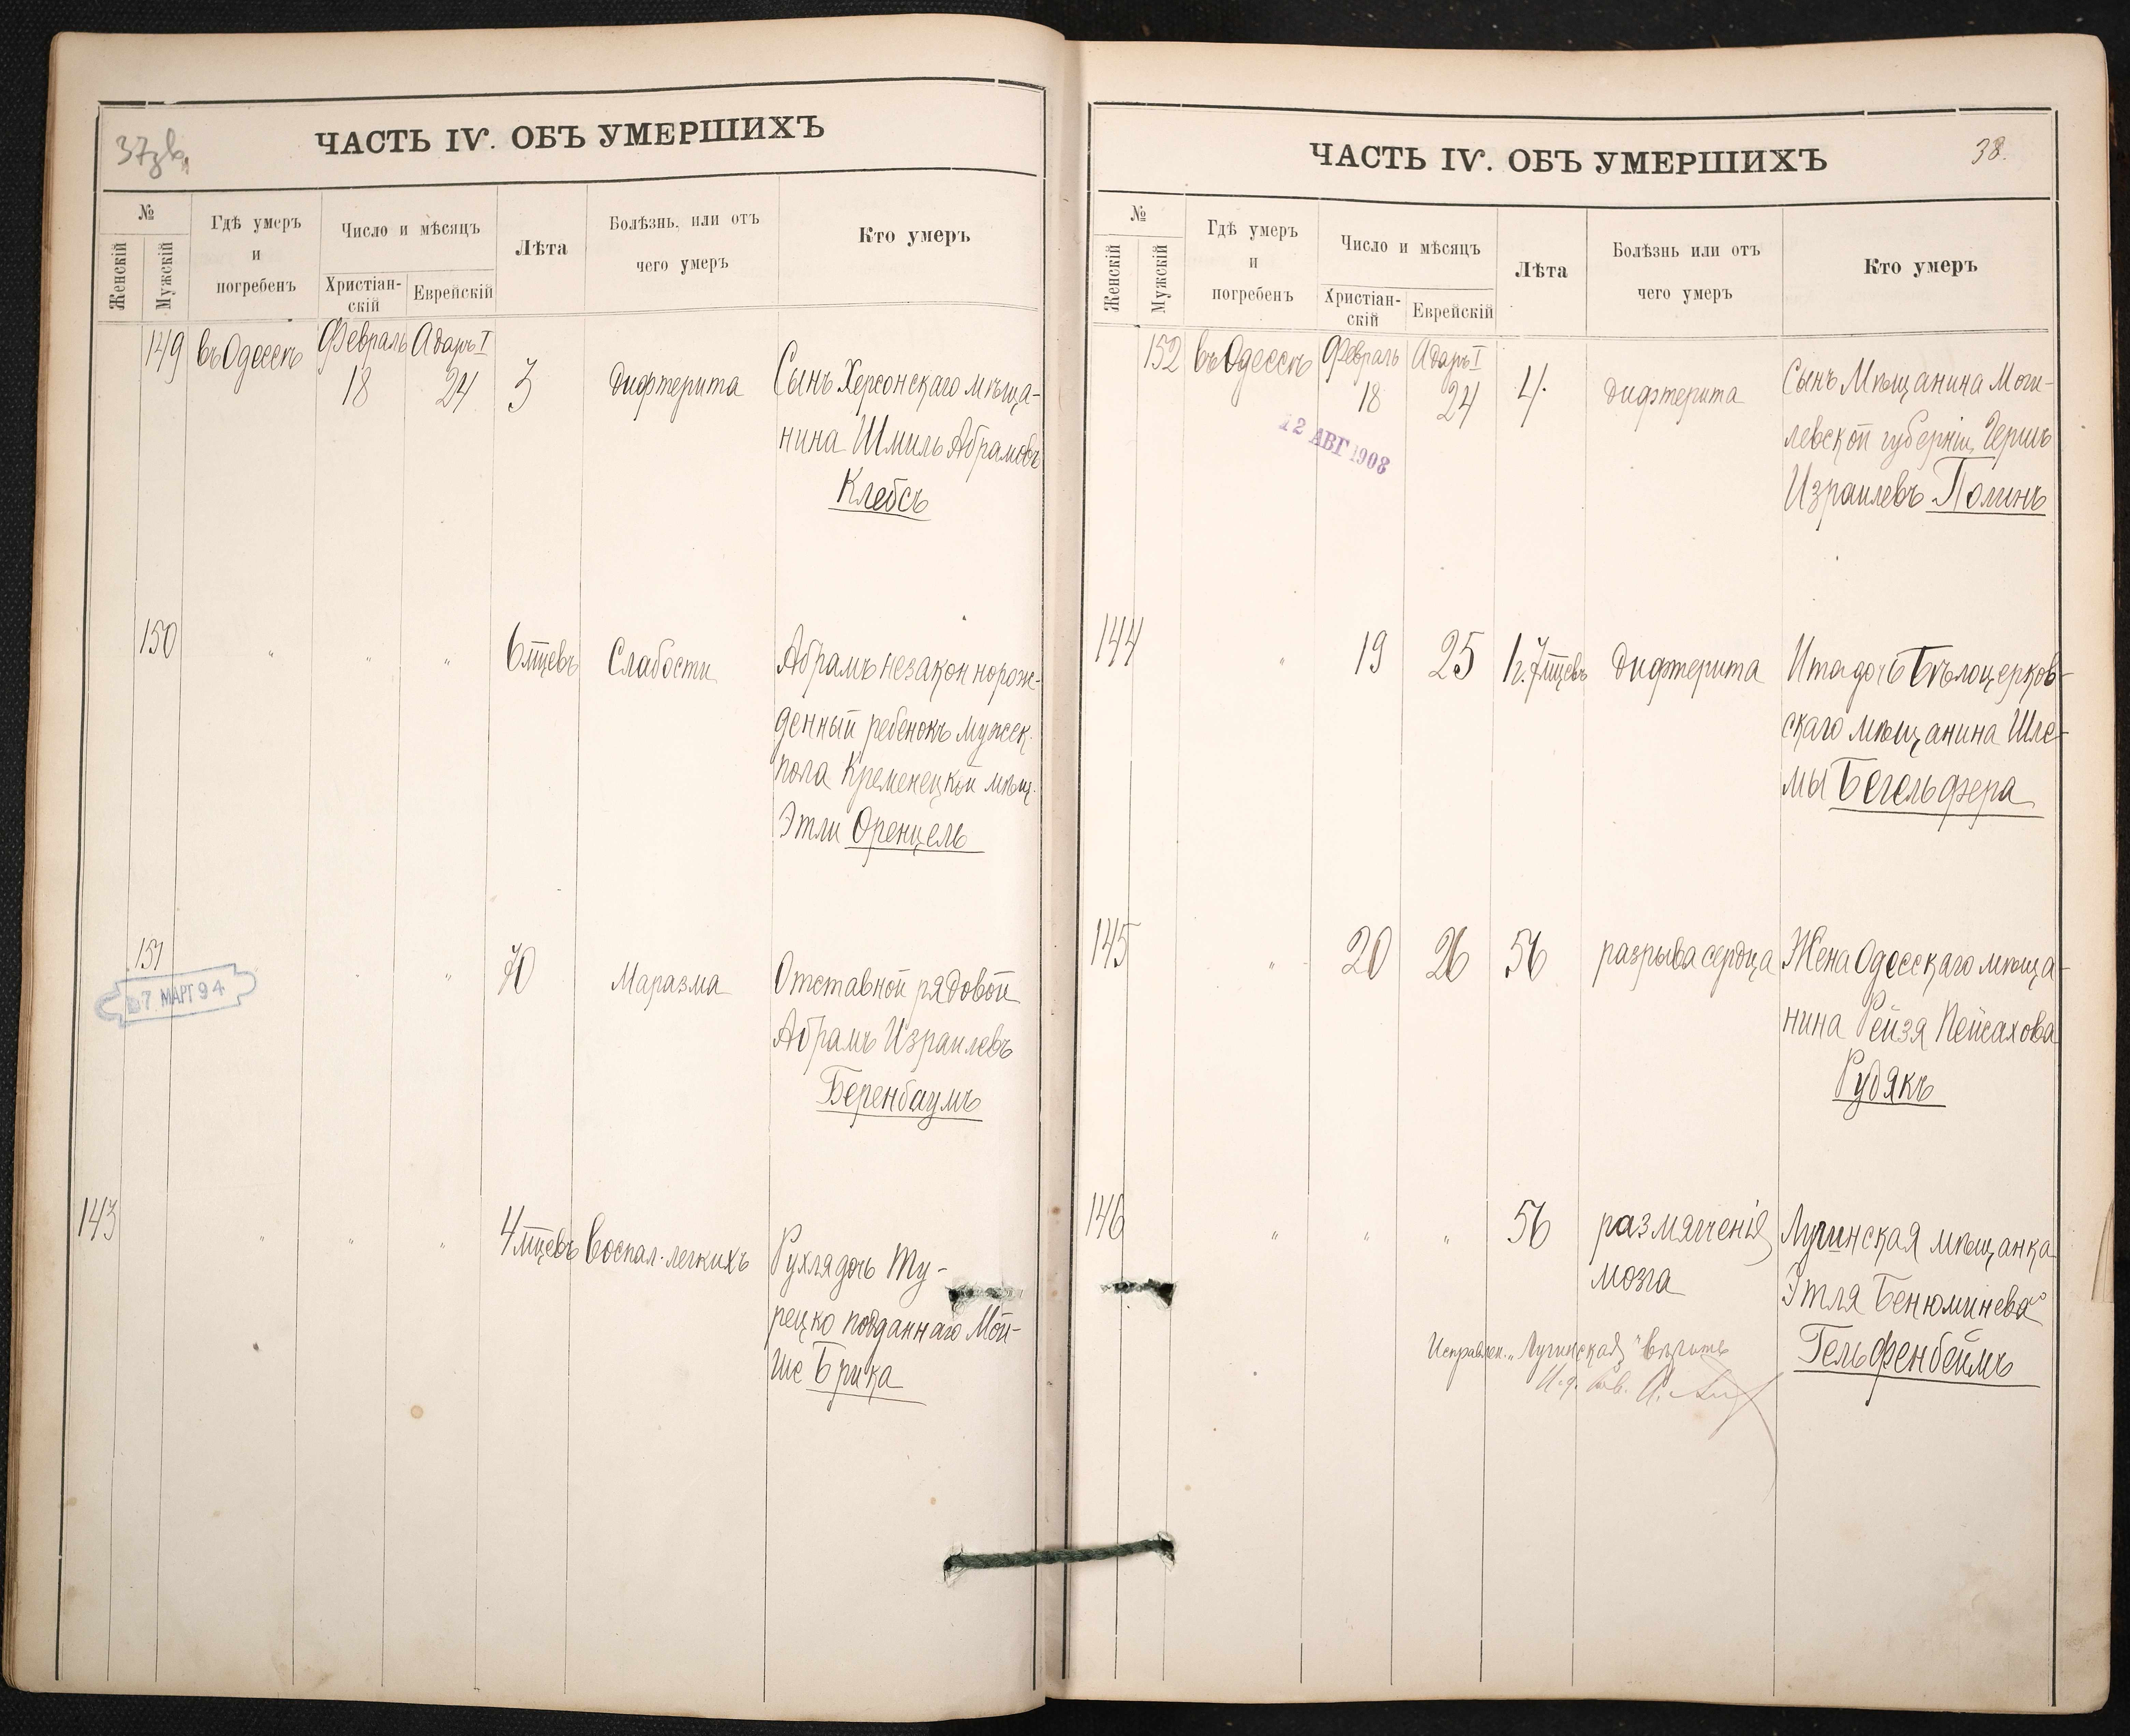 37 зв.
ЧАСТЬ IV. ОБЪ УМЕРШИХЪ
№
Женскій
Мужскій
Гдѣ умеръ
и
погребенъ
Число и мѣсяцъ
Христіан-
скій
Еврейскій
Лѣта
Болѣзнь, или отъ
чего умеръ
Кто умеръ
149 въ Одессѣ Февраль 18 Адаръ I 24 3 дифтерита Сынъ Херсонскаго мѣща-
нина Шмиль Абрамовъ
Клебсъ
150 " " " 6 мцевъ Слабости Абрамъ незаконнорож-
денный ребенокъ мужск.
пола Кременецкой мѣщ.
Этли Оренцель
151 " " 70 Маразма Отставной рядовой
7 МАРТ 94
Абрамъ Израилевъ
Беренбаумъ
143 " " " 4 мцевъ воспал. легкихъ Рухля дочь Ту-
рецко подданнаго Мой-
ше Брика
ЧАСТЬ IV. ОБЪ УМЕРШИХЪ
38.
№
Женскій
Мужскій
Гдѣ умеръ
и
погребенъ
Число и мѣсяцъ
Христіан-
скій
Еврейскій
Лѣта
Болѣзнь или отъ
чего умеръ
Кто умеръ
152 въ Одессѣ Февраль 18 Адаръ I 24 4. дифтерита Сынъ Мѣщанина Моги-
левской губерніи, Гершъ
12 АВГ 1908
Израилевъ Полинъ
144 " 19 25 1 г. 7 мцевъ дифтерита Ита дочь Бѣлоцерков-
скаго мѣщанина Шле-
мы Бегельфера
145 " 20 26 56 разрыва сердца Жена Одесскаго мѣща-
нина Рейзя Пейсахова
Рудякъ
146 " " " 56 размягченія Лугинская мѣщанка
мозга
Этля Бенюминева
Гельфенбеймъ
Исправлен. "Лугинская" вѣрить
И. д.